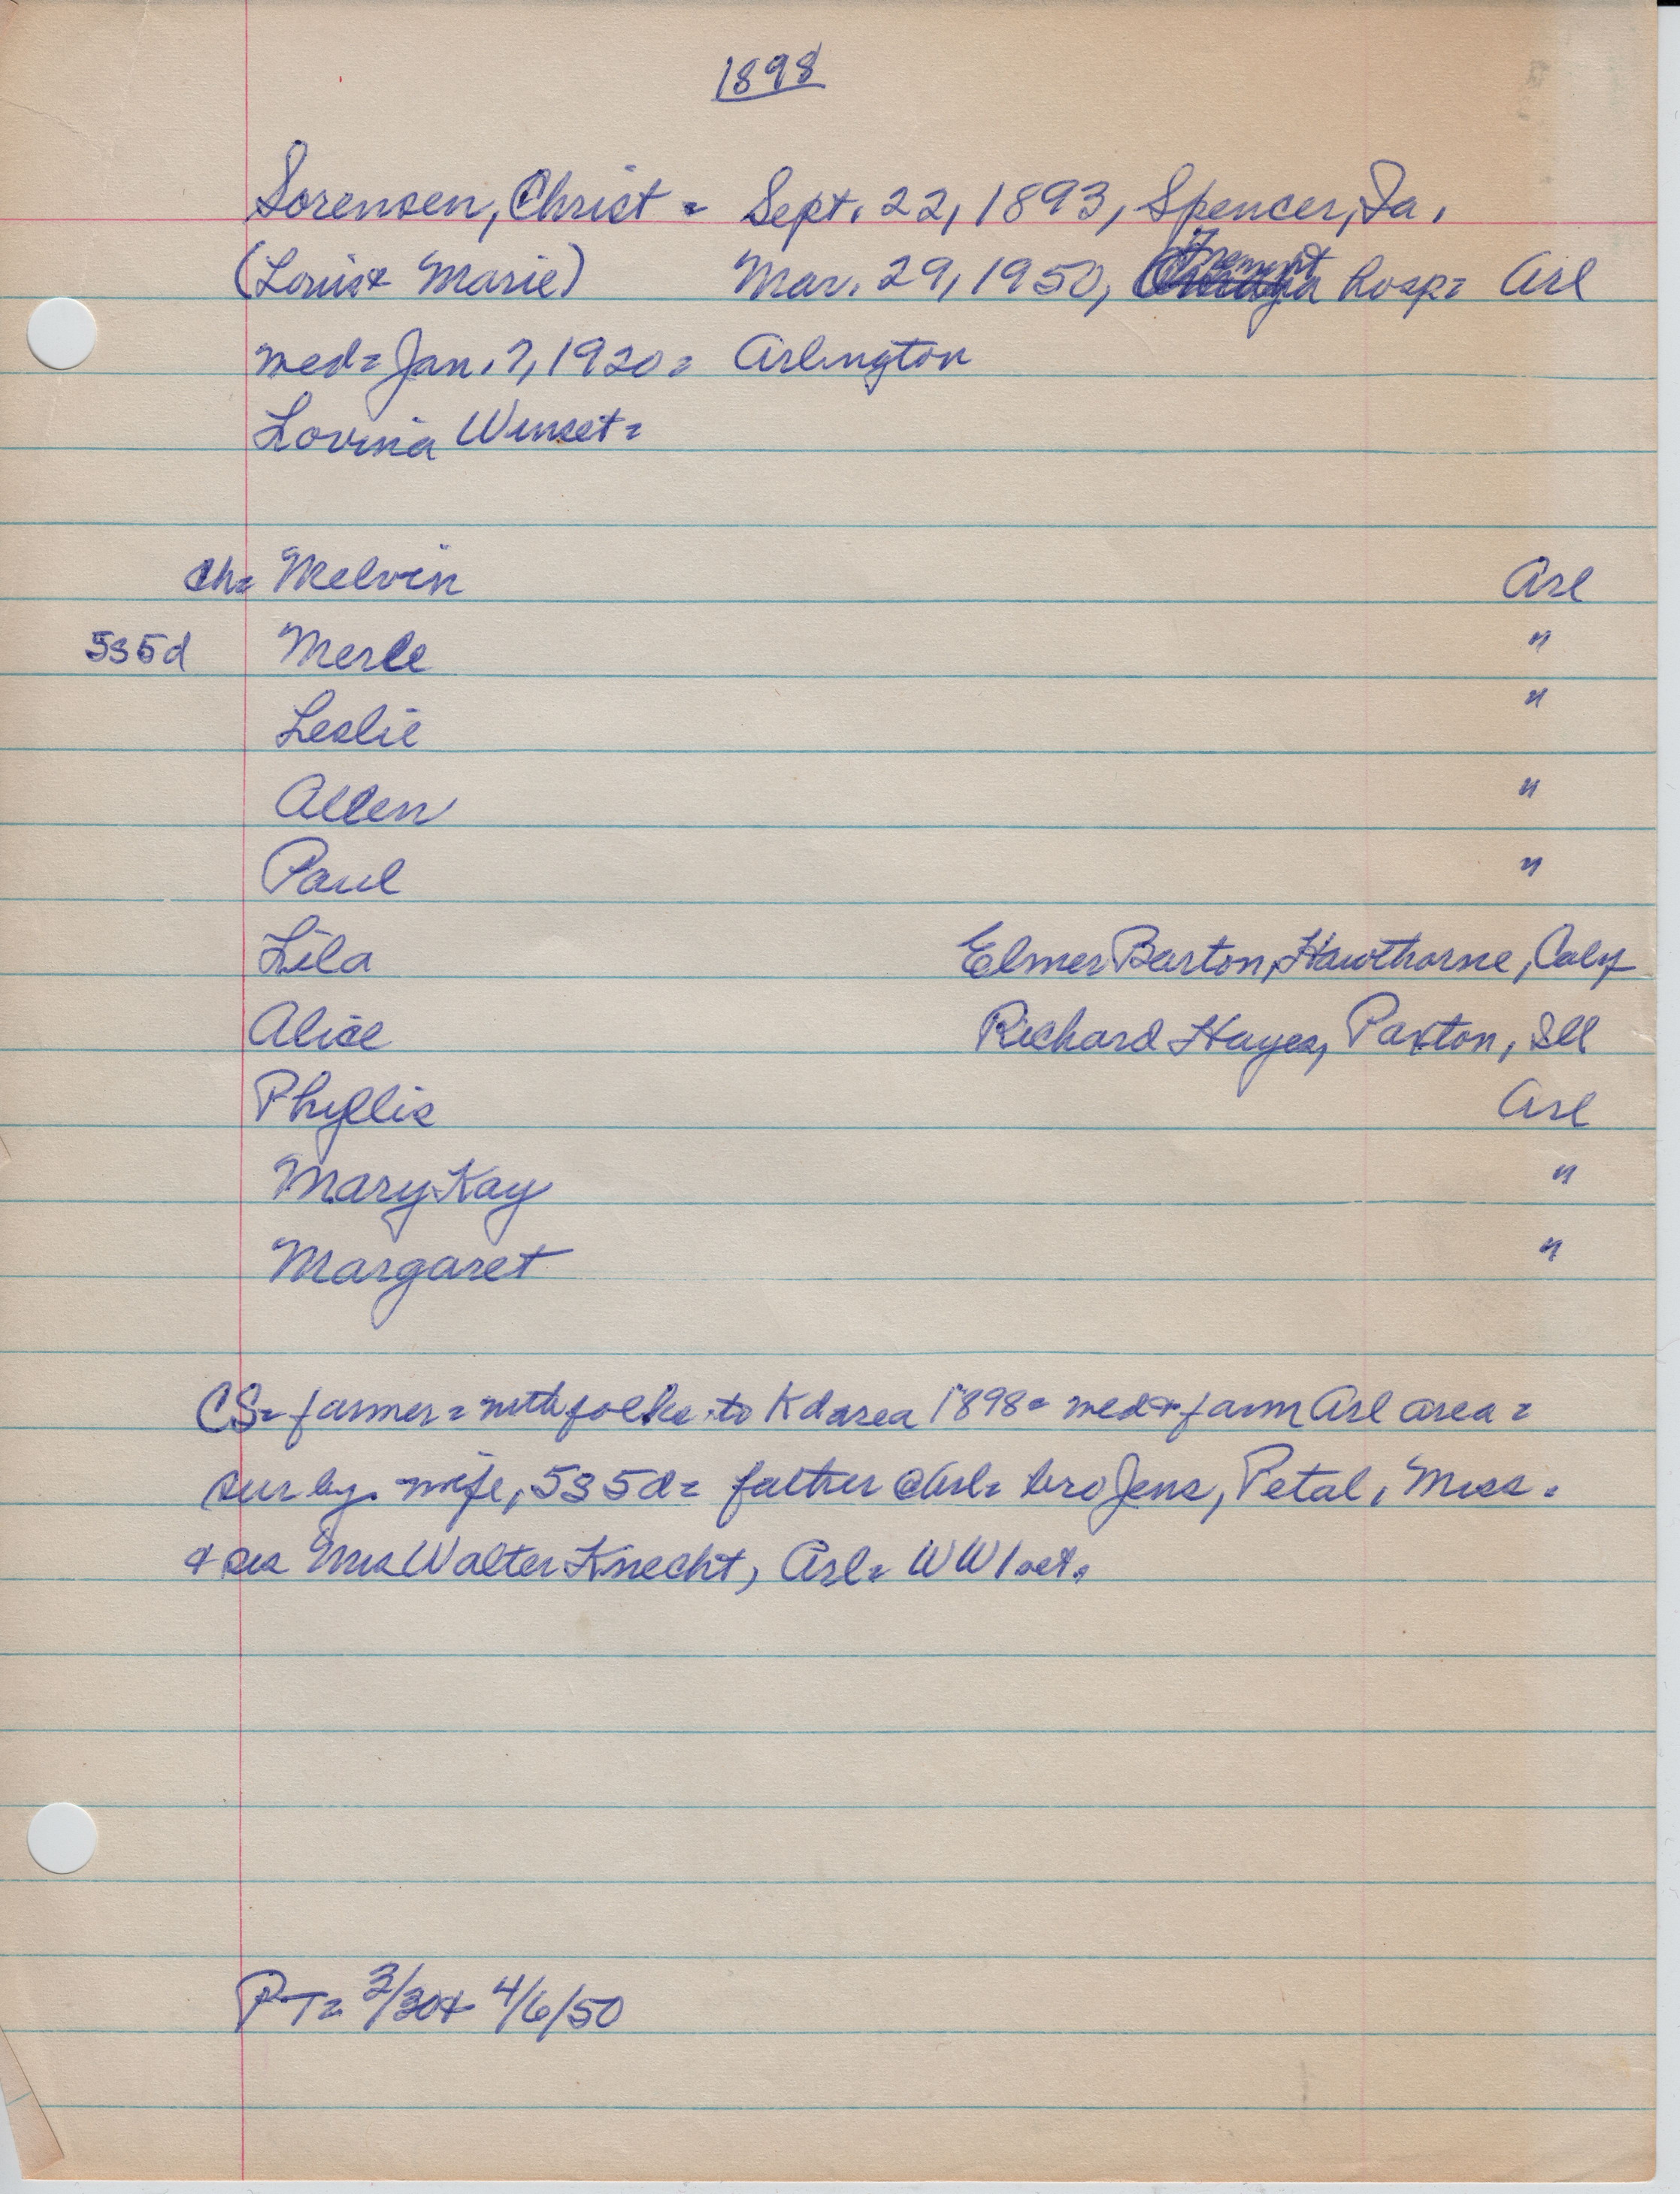 1898
Sorensen, Christ = Sept. 22, 1893, Spencer, Ia.
(Louis & Marie) Mar. 29, 1950, Fremont hosp = Arl
med = Jan. 7, 1920 = Arlington
Lovina Winset =
Ch = Melvin Arl
5s 5d Merle "
Leslie "
Allen "
Paul "
Lila Elmer Barton, Hawthorne, Calif
Alice Richard Hayes, Paxton, Ill
Phyllis Arl
Mary Kay "
Margaret "
CS = farmer = with folks to Kd area 1898 = med & farm Arl area =
sur by wife, 5s 5d = father @ Arl = bro Jens, Petal, Miss.
& sis Mrs Walter Knecht, Arl = WW1 vet.
PT = 3/30 & 4/6/50